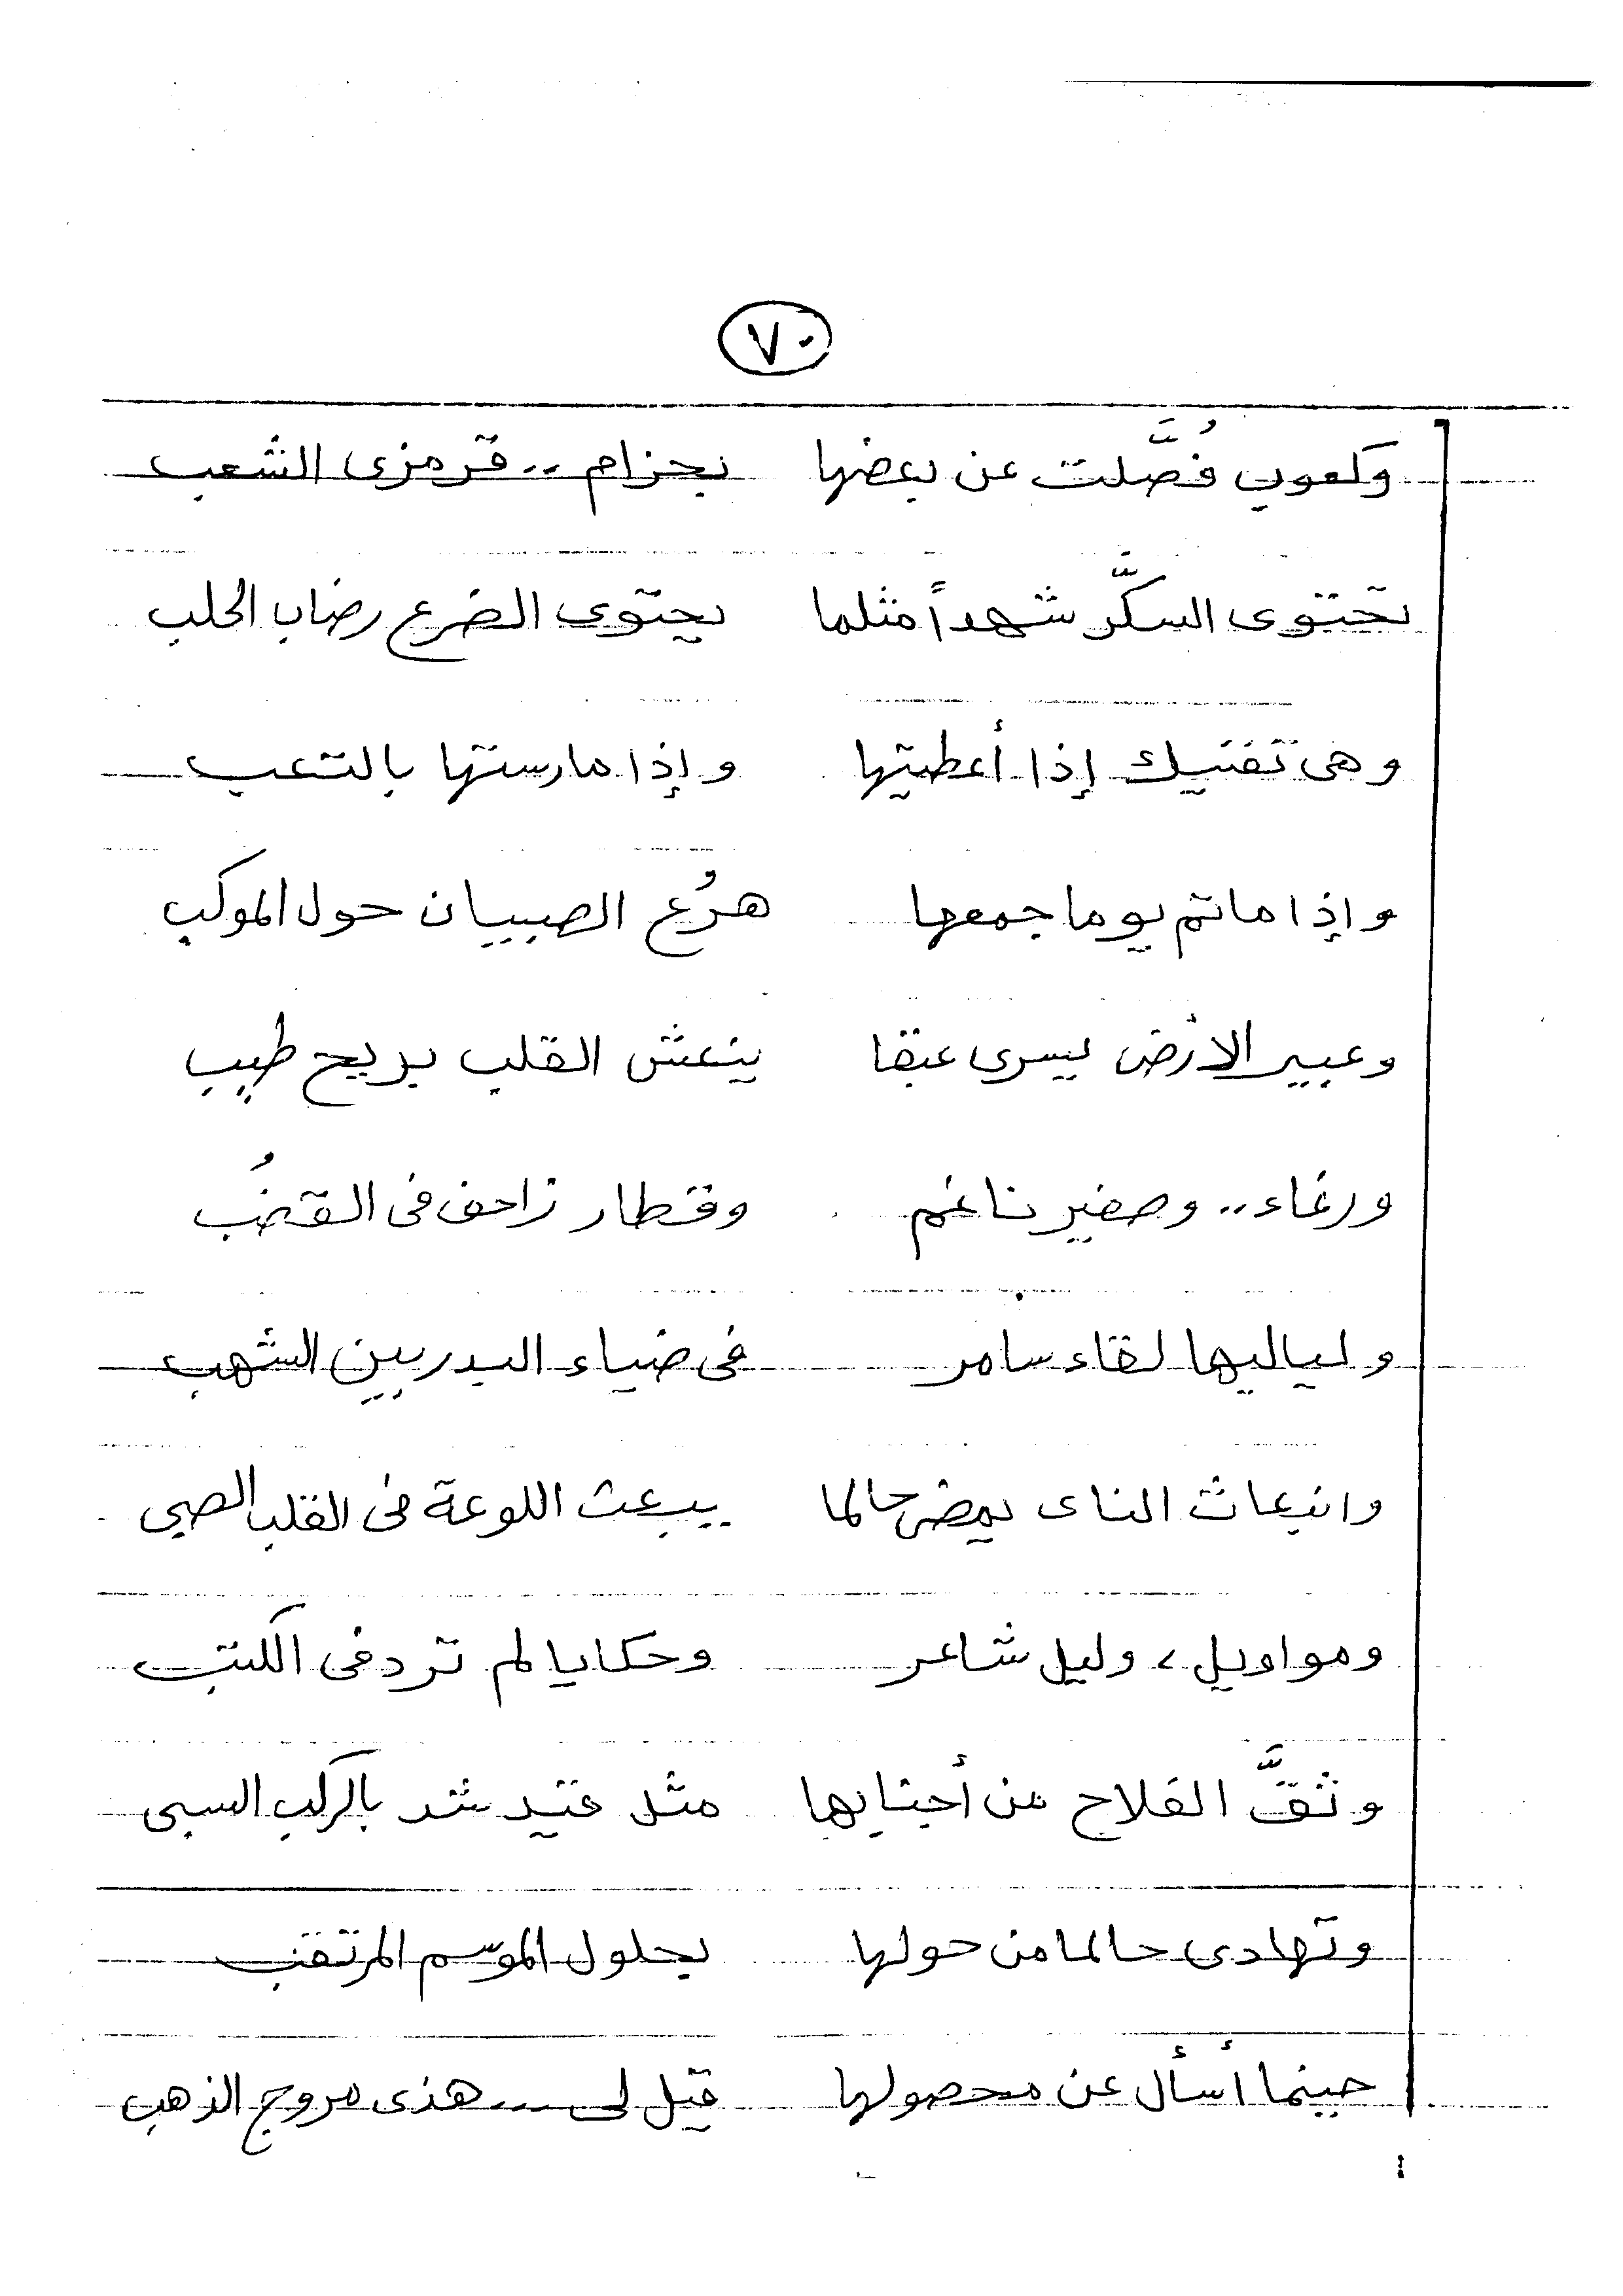 ٧٠
وكعوب فُصَّلت عن بعضها بحزام .. قرمزى الشعب
تحتوى السكَّر شهداً مثلما يحتوى الضرع رضاب الحلب
وهى تفنيك إذا أعطيتها وإذا مارستها بالتعب
وإذا ما تم يوما جمعها هرُع الصبيان حول الموكب
وعبير الأرض يسرى عبقا ينعش القلب بريح طيب
ورغاء .. وصفير ناغم وقطار زاحف فى القضُب
ولياليها لقاء سامر فى ضياء البدر بين الشهب
وانبعاث الناى يمضى حالما يبعث اللوعة فى القلب الصبى
ومواويل ، وليل شاعر وحكايا لم ترد فى الكتب
وثقَّ الفلاح من أجنابها مثل قيد شد بالركب السبى
وتهادى حالما من حولها بحلول الموسم المرتقب
حينما أسأل عن محصولها قيل لى ... هذى مروج الذهب